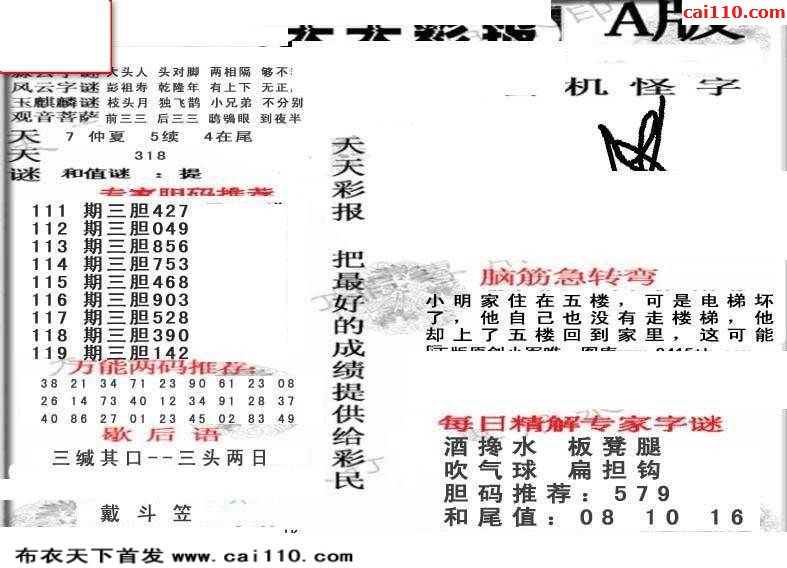 cai110.com
天天彩报
A版
大头人 头对脚 两相隔 够不
风云字谜 彭祖寿 乾隆年 有上下 无正
玉麒麟谜 枝头月 独飞鹊 小兄弟 不分别
观音菩萨 前三三 后三三 鸱鸮眼 到夜半
天 7 仲夏 5续 4在尾
天 318
谜 和值谜 : 提
专家胆码推荐
111 期三胆427
112 期三胆049
113 期三胆856
114 期三胆753
115 期三胆468
116 期三胆903
117 期三胆528
118 期三胆390
119 期三胆142
万能两码推荐:
38 21 34 71 23 90 61 23 08
26 14 73 40 12 34 91 28 37
40 86 27 01 23 45 02 83 49
歇后语
三缄其口--三头两日
戴斗笠
天天彩报 把最好的成绩提供给彩民
机怪字
脑筋急转弯
小明家住在五楼，可是电梯坏
了，他自己也没有走楼梯，他
却上了五楼回到家里，这可能
每日精解专家字谜
酒搀水 板凳腿
吹气球 扁担钩
胆码推荐: 579
和尾值: 08 10 16
布衣天下首发 www.cai110.com